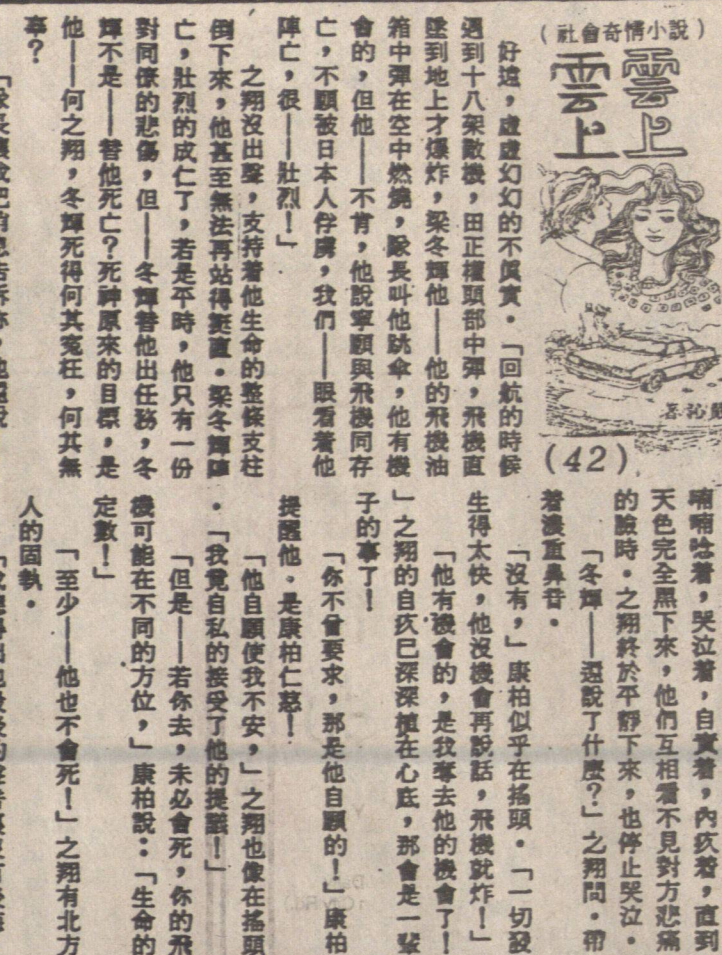 (社會奇情小說)
雲上
雲上
(42)
好遠，虛虛幻幻的不眞實。「回航的時候
遇到十八架敵機，田正權頭部中彈，飛機直
墜到地上才爆炸，梁冬輝他——他的飛機油
箱中彈在空中燃燒，隊長叫他跳傘，他有機
會的，但他——不肯，他說寧願與飛機同存
亡，不願被日本人俘虜，我們——眼看着他
陣亡，很——壯烈！」
之翔沒出聲，支持着他生命的整條支柱
倒下來，他甚至無法再站得挺直。梁冬輝陣
亡，壯烈的成仁了，若是平時，他只有一份
對同僚的悲傷，但——冬輝替他出任務，冬
輝不是——替他死亡？死神原來的目標，是
他——何之翔，冬輝死得何其寃枉，何其無
辜？
喃喃唸着，哭泣着，自責着，內疚着，直到
天色完全黑下來，他們互相看不見對方悲痛
的臉時。之翔終於平靜下來，也停止哭泣。
「冬輝——還說了什麼？」之翔問。帶
着濃重鼻音。
「沒有，」康柏似乎在搖頭。「一切發
生得太快，他沒機會再說話，飛機就炸！」
「他有機會的，是我奪去他的機會了！
」之翔的自疚已深深植在心底，那會是一輩
子的事了！
「你不曾要求，那是他自願的！」康柏
提醒他。是康柏仁慈！
「他自願使我不安，」之翔也像在搖頭
。「我竟自私的接受了他的提議！」
「但是——若你去，未必會死，你的飛
機可能在不同的方位，」康柏說：「生命的
定數！」
「至少——他也不會死！」之翔有北方
人的固執。